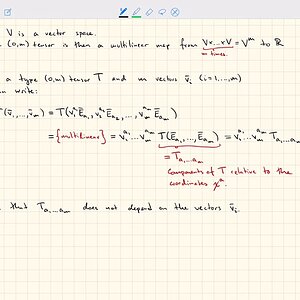 V is a vector space.
(0,m) tensor is then a multilinear map from V×...×V = Vᵐ to ℝ
m times.
a type (0,m) tensor T and m vectors v̄ᵢ (i=1,...,m)
n write:
(v̄₁,...,v̄ₘ) = T(v₁^{a₁}Ē_{a₁}, v₂^{a₂}Ē_{a₂}, ..., vₘ^{aₘ}Ē_{aₘ})
= {multilinear} = v₁^{a₁}...vₘ^{aₘ} T(Ē_{a₁},...,Ē_{aₘ}) = v₁^{a₁}...vₘ^{aₘ} T_{a₁...aₘ}
= T_{a₁...aₘ}
components of T relative to the
coordinates xᵃ.
that T_{a₁...aₘ} does not depend on the vectors v̄ᵢ.